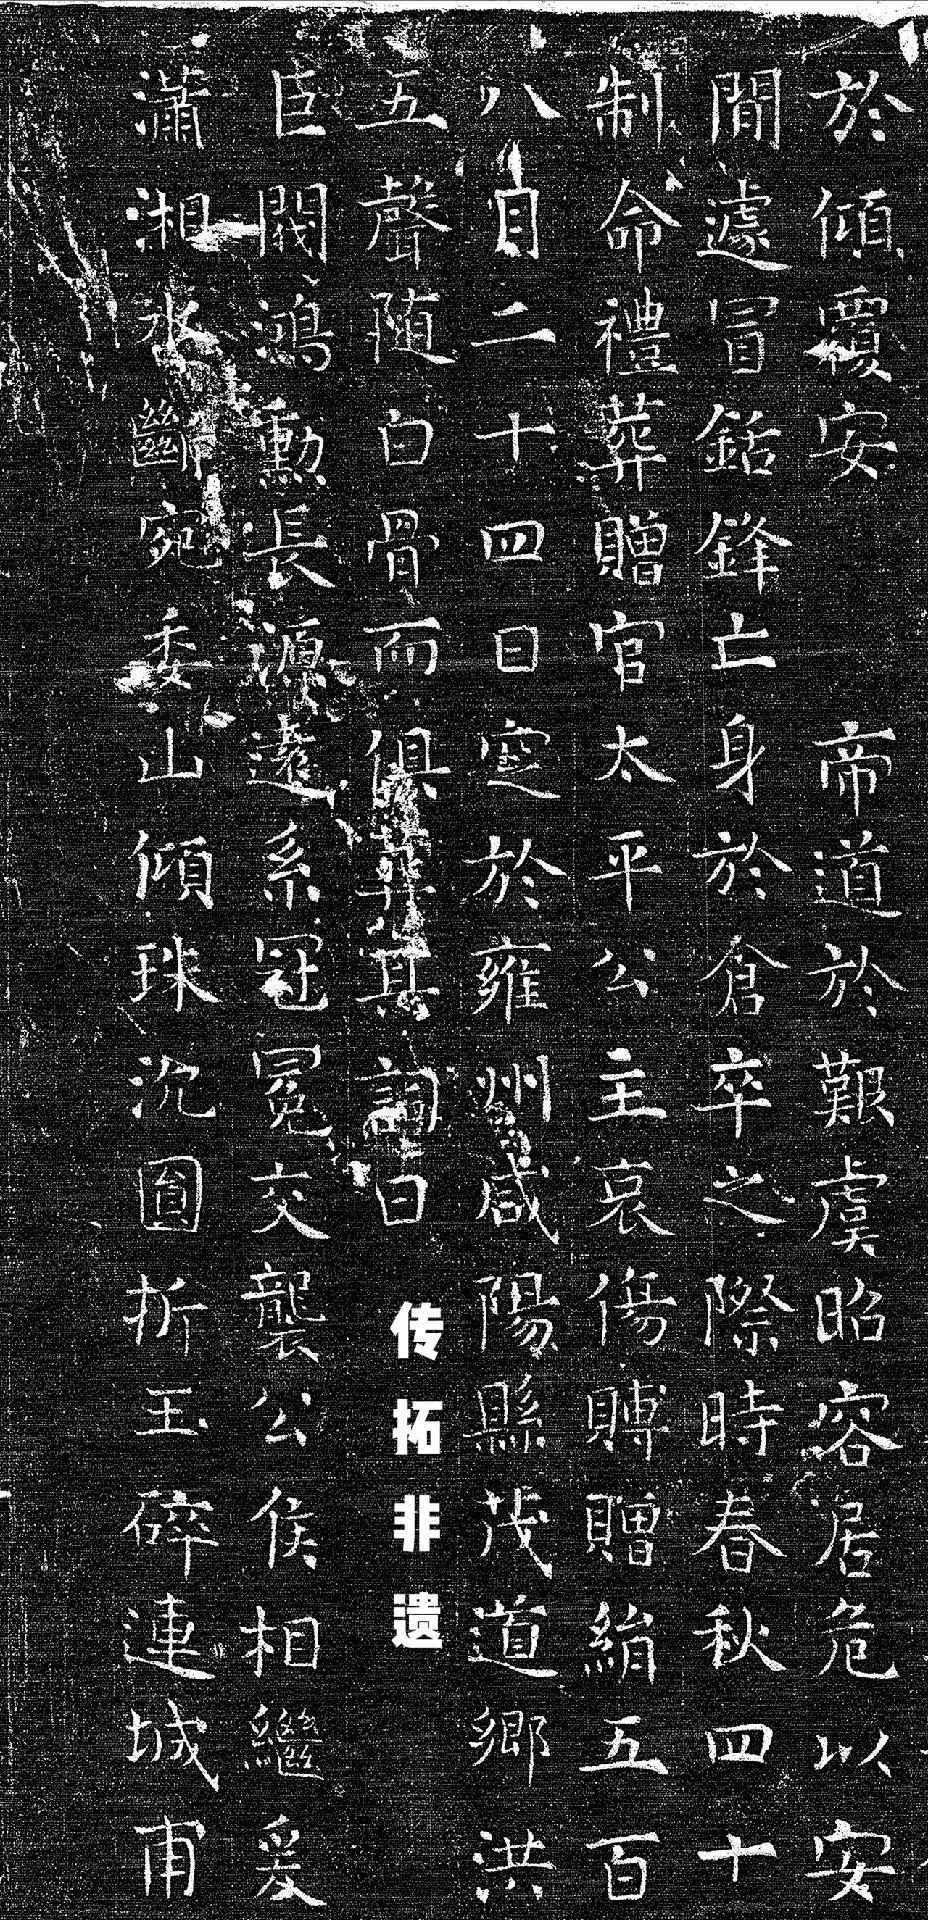 於傾覆安 帝道於艱虞昭容居危以安
間遽冒銛鋒亡身於倉卒之際時春秋四十
制命禮葬贈官太平公主哀傷賻贈絹五百
八月二十四日窆於雍州咸陽縣茂道鄉洪
五聲随白骨而俱葬其詞曰
传拓非遗
巨閥鴻勳長源遠系冠冕交襲公侯相繼爰
瀟湘水斷宛委山傾珠沉圓折玉碎連城甫